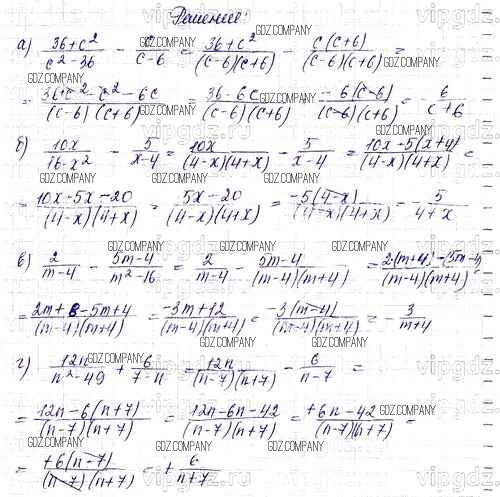 Решение:
а) (36+c²)/(c²-36) - c/(c-6) = (36+c²)/((c-6)(c+6)) - c(c+6)/((c-6)(c+6)) =
= (36+c²-c²-6c)/((c-6)(c+6)) = (36-6c)/((c-6)(c+6)) = -6(c-6)/((c-6)(c+6)) = 6/(c+6)
б) 10x/(16-x²) - 5/(x-4) = 10x/((4-x)(4+x)) - 5/(x-4) = (10x-5(x+4))/((4-x)(4+x)) =
= (10x-5x-20)/((4-x)(4+x)) = (5x-20)/((4-x)(4+x)) = -5(4-x)/((4-x)(4+x)) = - 5/(4+x)
в) 2/(m-4) - (5m-4)/(m²-16) = 2/(m-4) - (5m-4)/((m-4)(m+4)) = (2(m+4)-(5m-4))/((m-4)(m+4)) =
= (2m+8-5m+4)/((m-4)(m+4)) = (-3m+12)/((m-4)(m+4)) = -3(m-4)/((m-4)(m+4)) = - 3/(m+4)
г) 12n/(n²-49) + 6/(7-n) = 12n/((n-7)(n+7)) - 6/(n-7) =
= (12n-6(n+7))/((n-7)(n+7)) = (12n-6n-42)/((n-7)(n+7)) = (+6n-42)/((n-7)(n+7)) =
= +6(n-7)/((n-7)(n+7)) = + 6/(n+7)